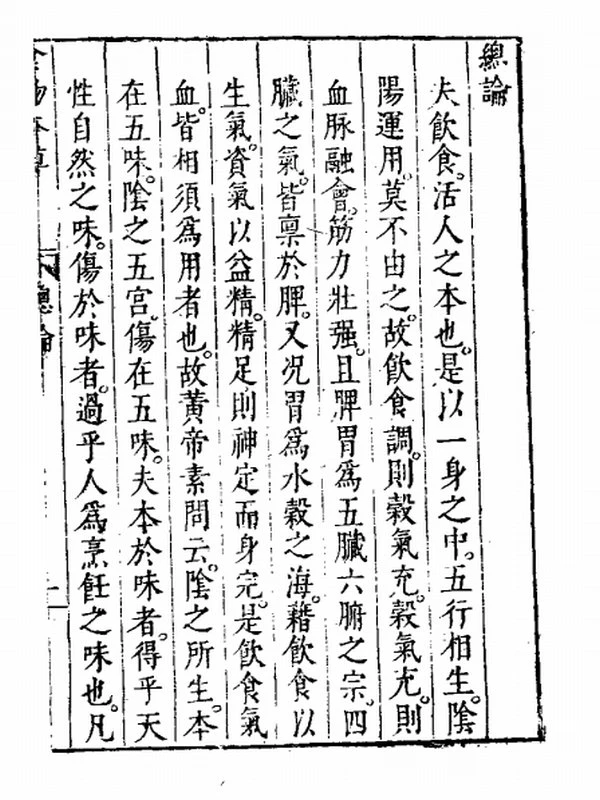 總論
夫飲食。活人之本也。是以一身之中。五行相生。陰
陽運用。莫不由之。故飲食調。則穀氣充。穀氣充。則
血脉融會。筋力壯强。且脾胃爲五臟六腑之宗。四
臟之氣。皆禀於脾。又况胃爲水穀之海。藉飲食以
生氣。資氣以益精。精足則神定而身完。是飲食氣
血。皆相須爲用者也。故黃帝素問云。陰之所生。本
在五味。陰之五宫。傷在五味。夫本於味者。得乎天
性自然之味。傷於味者。過乎人爲烹飪之味也。凡
總論